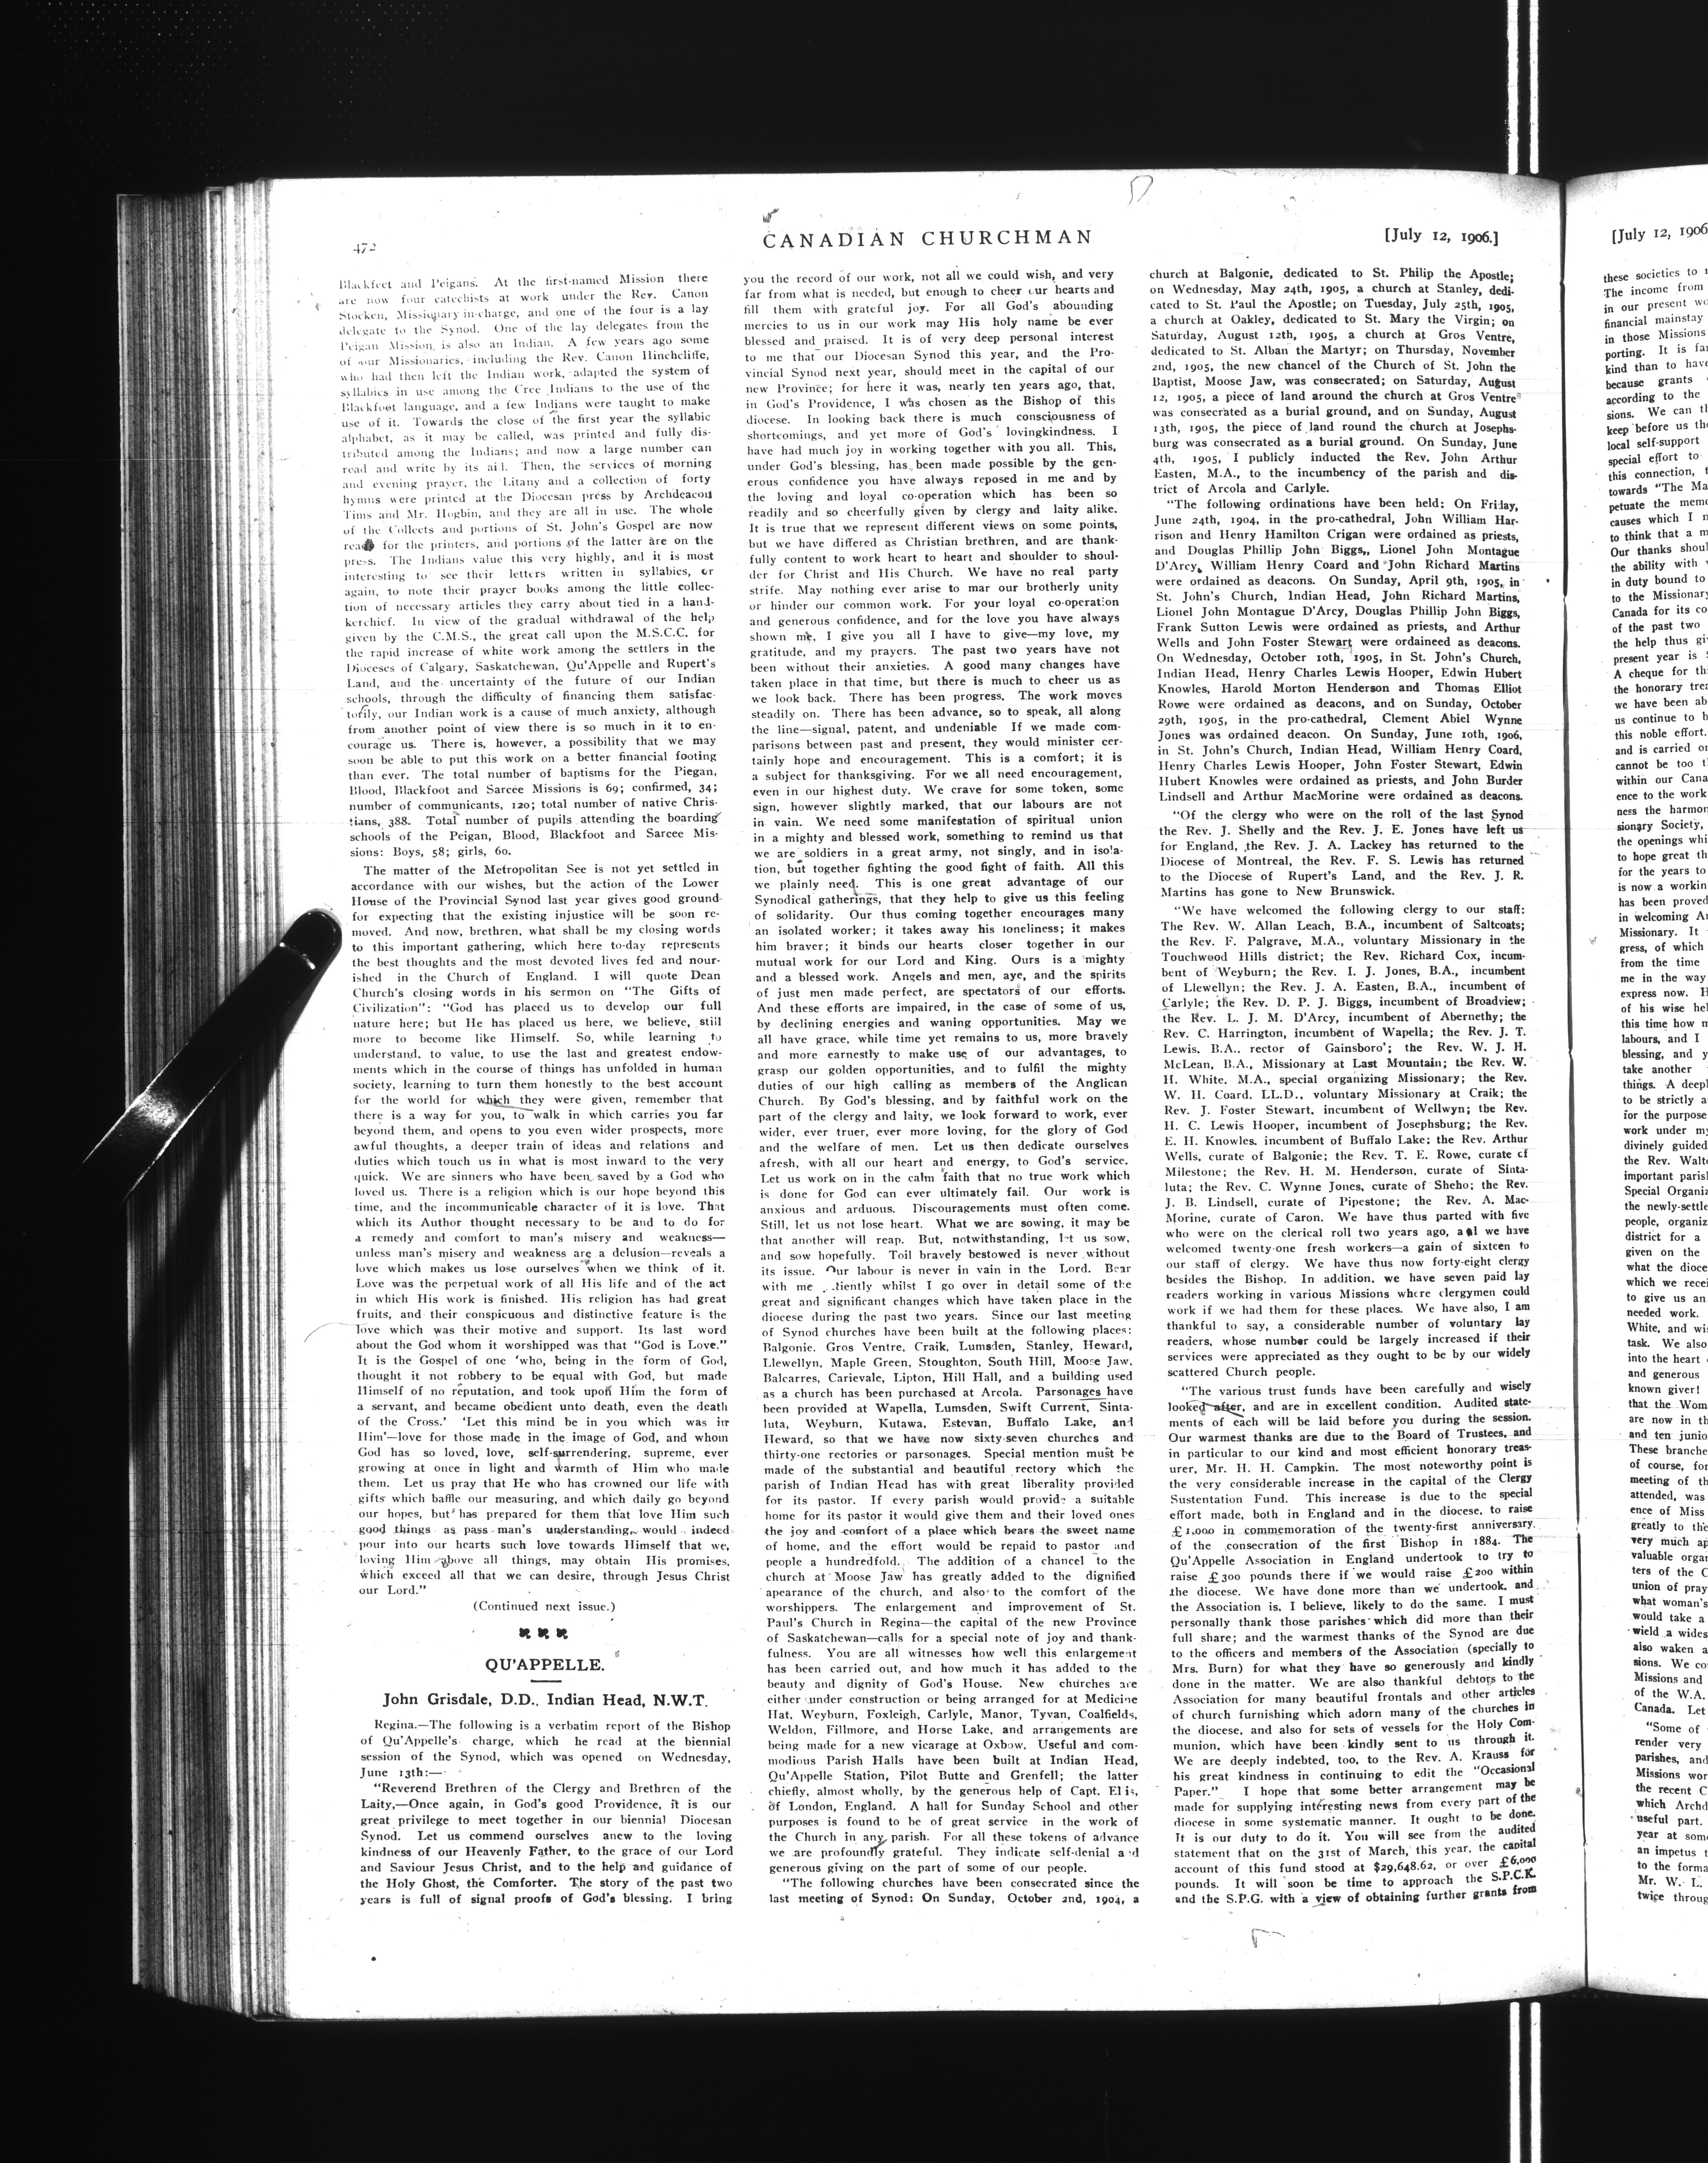 472
CANADIAN CHURCHMAN
[July 12, 1906.]
Blackfeet and Peigans. At the first-named Mission there
are now four catechists at work under the Rev. Canon
Stocken, Missionary in-charge, and one of the four is a lay
delegate to the Synod. One of the lay delegates from the
Peigan Mission is also an Indian. A few years ago some
of our Missionaries, including the Rev. Canon Hinchcliffe,
who had then left the Indian work, adapted the system of
syllabics in use among the Cree Indians to the use of the
Blackfoot language, and a few Indians were taught to make
use of it. Towards the close of the first year the syllabic
alphabet, as it may be called, was printed and fully dis-
tributed among the Indians; and now a large number can
read and write by its aid. Then, the services of morning
and evening prayer, the Litany and a collection of forty
hymns were printed at the Diocesan press by Archdeacon
Tims and Mr. Hogbin, and they are all in use. The whole
of the Collects and portions of St. John's Gospel are now
for the printers, and portions of the latter are on the
press. The Indians value this very highly, and it is most
interesting to see their letters written in syllabics, or
again, to note their prayer books among the little collec-
tion of necessary articles they carry about tied in a hand-
kerchief. In view of the gradual withdrawal of the help
given by the C.M.S., the great call upon the M.S.C.C. for
the rapid increase of white work among the settlers in the
Dioceses of Calgary, Saskatchewan, Qu'Appelle and Rupert's
Land, and the uncertainty of the future of our Indian
schools, through the difficulty of financing them satisfac-
torily, our Indian work is a cause of much anxiety, although
from another point of view there is so much in it to en-
courage us. There is, however, a possibility that we may
soon be able to put this work on a better financial footing
than ever. The total number of baptisms for the Piegan,
Blood, Blackfoot and Sarcee Missions is 69; confirmed, 34;
number of communicants, 120; total number of native Chris-
tians, 388. Total number of pupils attending the boarding
schools of the Peigan, Blood, Blackfoot and Sarcee Mis-
sions: Boys, 58; girls, 60.
The matter of the Metropolitan See is not yet settled in
accordance with our wishes, but the action of the Lower
House of the Provincial Synod last year gives good ground
for expecting that the existing injustice will be soon re-
moved. And now, brethren, what shall be my closing words
to this important gathering, which here to-day represents
the best thoughts and the most devoted lives fed and nour-
ished in the Church of England. I will quote Dean
Church's closing words in his sermon on "The Gifts of
Civilization": "God has placed us to develop our full
nature here; but He has placed us here, we believe, still
more to become like Himself. So, while learning to
understand, to value, to use the last and greatest endow-
ments which in the course of things has unfolded in human
society, learning to turn them honestly to the best account
for the world for which they were given, remember that
there is a way for you, to walk in which carries you far
beyond them, and opens to you even wider prospects, more
awful thoughts, a deeper train of ideas and relations and
duties which touch us in what is most inward to the very
quick. We are sinners who have been saved by a God who
loved us. There is a religion which is our hope beyond this
time, and the incommunicable character of it is love. That
which its Author thought necessary to be and to do for
a remedy and comfort to man's misery and weakness—
unless man's misery and weakness are a delusion—reveals a
love which makes us lose ourselves when we think of it.
Love was the perpetual work of all His life and of the act
in which His work is finished. His religion has had great
fruits, and their conspicuous and distinctive feature is the
love which was their motive and support. Its last word
about the God whom it worshipped was that "God is Love."
It is the Gospel of one 'who, being in the form of God,
thought it not robbery to be equal with God, but made
Himself of no reputation, and took upon Him the form of
a servant, and became obedient unto death, even the death
of the Cross.' 'Let this mind be in you which was in
Him'—love for those made in the image of God, and whom
God has so loved, love, self-surrendering, supreme, ever
growing at once in light and warmth of Him who made
them. Let us pray that He who has crowned our life with
gifts which baffle our measuring, and which daily go beyond
our hopes, but has prepared for them that love Him such
good things as pass man's understanding, would indeed
pour into our hearts such love towards Himself that we,
loving Him above all things, may obtain His promises,
which exceed all that we can desire, through Jesus Christ
our Lord."
(Continued next issue.)
QU'APPELLE.
John Grisdale, D.D., Indian Head, N.W.T.
Regina.—The following is a verbatim report of the Bishop
of Qu'Appelle's charge, which he read at the biennial
session of the Synod, which was opened on Wednesday,
June 13th:—
"Reverend Brethren of the Clergy and Brethren of the
Laity,—Once again, in God's good Providence, it is our
great privilege to meet together in our biennial Diocesan
Synod. Let us commend ourselves anew to the loving
kindness of our Heavenly Father, to the grace of our Lord
and Saviour Jesus Christ, and to the help and guidance of
the Holy Ghost, the Comforter. The story of the past two
years is full of signal proofs of God's blessing. I bring
you the record of our work, not all we could wish, and very
far from what is needed, but enough to cheer our hearts and
fill them with grateful joy. For all God's abounding
mercies to us in our work may His holy name be ever
blessed and praised. It is of very deep personal interest
to me that our Diocesan Synod this year, and the Pro-
vincial Synod next year, should meet in the capital of our
new Province; for here it was, nearly ten years ago, that,
in God's Providence, I was chosen as the Bishop of this
diocese. In looking back there is much consciousness of
shortcomings, and yet more of God's lovingkindness. I
have had much joy in working together with you all. This,
under God's blessing, has been made possible by the gen-
erous confidence you have always reposed in me and by
the loving and loyal co-operation which has been so
readily and so cheerfully given by clergy and laity alike.
It is true that we represent different views on some points,
but we have differed as Christian brethren, and are thank-
fully content to work heart to heart and shoulder to shoul-
der for Christ and His Church. We have no real party
strife. May nothing ever arise to mar our brotherly unity
or hinder our common work. For your loyal co-operation
and generous confidence, and for the love you have always
shown me, I give you all I have to give—my love, my
gratitude, and my prayers. The past two years have not
been without their anxieties. A good many changes have
taken place in that time, but there is much to cheer us as
we look back. There has been progress. The work moves
steadily on. There has been advance, so to speak, all along
the line—signal, patent, and undeniable If we made com-
parisons between past and present, they would minister cer-
tainly hope and encouragement. This is a comfort; it is
a subject for thanksgiving. For we all need encouragement,
even in our highest duty. We crave for some token, some
sign, however slightly marked, that our labours are not
in vain. We need some manifestation of spiritual union
in a mighty and blessed work, something to remind us that
we are soldiers in a great army, not singly, and in isola-
tion, but together fighting the good fight of faith. All this
we plainly need. This is one great advantage of our
Synodical gatherings, that they help to give us this feeling
of solidarity. Our thus coming together encourages many
an isolated worker; it takes away his loneliness; it makes
him braver; it binds our hearts closer together in our
mutual work for our Lord and King. Ours is a mighty
and a blessed work. Angels and men, aye, and the spirits
of just men made perfect, are spectators of our efforts.
And these efforts are impaired, in the case of some of us,
by declining energies and waning opportunities. May we
all have grace, while time yet remains to us, more bravely
and more earnestly to make use of our advantages, to
grasp our golden opportunities, and to fulfil the mighty
duties of our high calling as members of the Anglican
Church. By God's blessing, and by faithful work on the
part of the clergy and laity, we look forward to work, ever
wider, ever truer, ever more loving, for the glory of God
and the welfare of men. Let us then dedicate ourselves
afresh, with all our heart and energy, to God's service.
Let us work on in the calm faith that no true work which
is done for God can ever ultimately fail. Our work is
anxious and arduous. Discouragements must often come.
Still, let us not lose heart. What we are sowing, it may be
that another will reap. But, notwithstanding, let us sow,
and sow hopefully. Toil bravely bestowed is never without
its issue. Our labour is never in vain in the Lord. Bear
with me whilst I go over in detail some of the
great and significant changes which have taken place in the
diocese during the past two years. Since our last meeting
of Synod churches have been built at the following places:
Balgonie. Gros Ventre, Craik, Lumsden, Stanley, Heward,
Llewellyn, Maple Green, Stoughton, South Hill, Moose Jaw,
Balcarres, Carievale, Lipton, Hill Hall, and a building used
as a church has been purchased at Arcola. Parsonages have
been provided at Wapella, Lumsden, Swift Current, Sinta-
luta, Weyburn, Kutawa, Estevan, Buffalo Lake, and
Heward, so that we have now sixty-seven churches and
thirty-one rectories or parsonages. Special mention must be
made of the substantial and beautiful rectory which the
parish of Indian Head has with great liberality provided
for its pastor. If every parish would provide a suitable
home for its pastor it would give them and their loved ones
the joy and comfort of a place which bears the sweet name
of home, and the effort would be repaid to pastor and
people a hundredfold. The addition of a chancel to the
church at Moose Jaw has greatly added to the dignified
apearance of the church, and also to the comfort of the
worshippers. The enlargement and improvement of St.
Paul's Church in Regina—the capital of the new Province
of Saskatchewan—calls for a special note of joy and thank-
fulness. You are all witnesses how well this enlargement
has been carried out, and how much it has added to the
beauty and dignity of God's House. New churches are
either under construction or being arranged for at Medicine
Hat, Weyburn, Foxleigh, Carlyle, Manor, Tyvan, Coalfields,
Weldon, Fillmore, and Horse Lake, and arrangements are
being made for a new vicarage at Oxbow. Useful and com-
modious Parish Halls have been built at Indian Head,
Qu'Appelle Station, Pilot Butte and Grenfell; the latter
chiefly, almost wholly, by the generous help of Capt. Ellis,
of London, England. A hall for Sunday School and other
purposes is found to be of great service in the work of
the Church in any parish. For all these tokens of advance
we are profoundly grateful. They indicate self-denial and
generous giving on the part of some of our people.
"The following churches have been consecrated since the
last meeting of Synod: On Sunday, October 2nd, 1904, a
church at Balgonie, dedicated to St. Philip the Apostle;
on Wednesday, May 24th, 1905, a church at Stanley, dedi-
cated to St. Paul the Apostle; on Tuesday, July 25th, 1905,
a church at Oakley, dedicated to St. Mary the Virgin; on
Saturday, August 12th, 1905, a church at Gros Ventre,
dedicated to St. Alban the Martyr; on Thursday, November
2nd, 1905, the new chancel of the Church of St. John the
Baptist, Moose Jaw, was consecrated; on Saturday, August
12, 1905, a piece of land around the church at Gros Ventre
was consecrated as a burial ground, and on Sunday, August
13th, 1905, the piece of land round the church at Josephs-
burg was consecrated as a burial ground. On Sunday, June
4th, 1905, I publicly inducted the Rev. John Arthur
Easten, M.A., to the incumbency of the parish and dis-
trict of Arcola and Carlyle.
"The following ordinations have been held: On Friday,
June 24th, 1904, in the pro-cathedral, John William Har-
rison and Henry Hamilton Crigan were ordained as priests,
and Douglas Phillip John Biggs,, Lionel John Montague
D'Arcy, William Henry Coard and John Richard Martins
were ordained as deacons. On Sunday, April 9th, 1905, in
St. John's Church, Indian Head, John Richard Martins,
Lionel John Montague D'Arcy, Douglas Phillip John Biggs,
Frank Sutton Lewis were ordained as priests, and Arthur
Wells and John Foster Stewart were ordaineed as deacons.
On Wednesday, October 10th, 1905, in St. John's Church,
Indian Head, Henry Charles Lewis Hooper, Edwin Hubert
Knowles, Harold Morton Henderson and Thomas Elliot
Rowe were ordained as deacons, and on Sunday, October
29th, 1905, in the pro-cathedral, Clement Abiel Wynne
Jones was ordained deacon. On Sunday, June 10th, 1906,
in St. John's Church, Indian Head, William Henry Coard,
Henry Charles Lewis Hooper, John Foster Stewart, Edwin
Hubert Knowles were ordained as priests, and John Burder
Lindsell and Arthur MacMorine were ordained as deacons.
"Of the clergy who were on the roll of the last Synod
the Rev. J. Shelly and the Rev. J. E. Jones have left us
for England, the Rev. J. A. Lackey has returned to the
Diocese of Montreal, the Rev. F. S. Lewis has returned
to the Diocese of Rupert's Land, and the Rev. J. R.
Martins has gone to New Brunswick.
"We have welcomed the following clergy to our staff:
The Rev. W. Allan Leach, B.A., incumbent of Saltcoats;
the Rev. F. Palgrave, M.A., voluntary Missionary in the
Touchwood Hills district; the Rev. Richard Cox, incum-
bent of Weyburn; the Rev. I. J. Jones, B.A., incumbent
of Llewellyn; the Rev. J. A. Easten, B.A., incumbent of
Carlyle; the Rev. D. P. J. Biggs, incumbent of Broadview;
the Rev. L. J. M. D'Arcy, incumbent of Abernethy; the
Rev. C. Harrington, incumbent of Wapella; the Rev. J. T.
Lewis, B.A., rector of Gainsboro'; the Rev. W. J. H.
McLean, B.A., Missionary at Last Mountain; the Rev. W.
H. White, M.A., special organizing Missionary; the Rev.
W. H. Coard, LL.D., voluntary Missionary at Craik; the
Rev. J. Foster Stewart, incumbent of Wellwyn; the Rev.
H. C. Lewis Hooper, incumbent of Josephsburg; the Rev.
E. H. Knowles, incumbent of Buffalo Lake; the Rev. Arthur
Wells, curate of Balgonie; the Rev. T. E. Rowe, curate of
Milestone; the Rev. H. M. Henderson, curate of Sinta-
luta; the Rev. C. Wynne Jones, curate of Sheho; the Rev.
J. B. Lindsell, curate of Pipestone; the Rev. A. Mac-
Morine, curate of Caron. We have thus parted with five
who were on the clerical roll two years ago, and we have
welcomed twenty-one fresh workers—a gain of sixteen to
our staff of clergy. We have thus now forty-eight clergy
besides the Bishop. In addition, we have seven paid lay
readers working in various Missions where clergymen could
work if we had them for these places. We have also, I am
thankful to say, a considerable number of voluntary lay
readers, whose number could be largely increased if their
services were appreciated as they ought to be by our widely
scattered Church people.
"The various trust funds have been carefully and wisely
looked after, and are in excellent condition. Audited state-
ments of each will be laid before you during the session.
Our warmest thanks are due to the Board of Trustees, and
in particular to our kind and most efficient honorary treas-
urer, Mr. H. H. Campkin. The most noteworthy point is
the very considerable increase in the capital of the Clergy
Sustentation Fund. This increase is due to the special
effort made, both in England and in the diocese, to raise
£1,000 in commemoration of the twenty-first anniversary
of the consecration of the first Bishop in 1884. The
Qu'Appelle Association in England undertook to try to
raise £300 pounds there if we would raise £200 within
the diocese. We have done more than we undertook, and
the Association is, I believe, likely to do the same. I must
personally thank those parishes which did more than their
full share; and the warmest thanks of the Synod are due
to the officers and members of the Association (specially to
Mrs. Burn) for what they have so generously and kindly
done in the matter. We are also thankful debtors to the
Association for many beautiful frontals and other articles
of church furnishing which adorn many of the churches in
the diocese, and also for sets of vessels for the Holy Com-
munion, which have been kindly sent to us through it.
We are deeply indebted, too, to the Rev. A. Krauss for
his great kindness in continuing to edit the "Occasional
Paper." I hope that some better arrangement may be
made for supplying interesting news from every part of the
diocese in some systematic manner. It ought to be done.
It is our duty to do it. You will see from the audited
statement that on the 31st of March, this year, the capital
account of this fund stood at $29,648.62, or over £6,000
pounds. It will soon be time to approach the S.P.C.K.
and the S.P.G. with a view of obtaining further grants from
[July 12, 1906
these societies to
The income from
in our present
financial mainstay
in those Missions
porting. It is
kind than to have
because grants
according to the
sions. We can
keep before us
local self-support
special effort to
this connection,
towards "The
petuate the
causes which I
to think that a
Our thanks
the ability with
in duty bound to
to the
Canada for its
of the past two
the help thus
present year is
A cheque for
the honorary
we have been
us continue to
this noble effort.
and is carried
cannot be too
within our
ence to the work
ness the
sionary Society,
the openings
to hope great
for the years to
is now a
has been
in welcoming
Missionary. It
gress, of which
from the time
me in the way
express now.
of his wise
this time how
labours, and I
blessing, and
take another
things. A
to be strictly
for the purpose
work under
divinely guided
the Rev.
important
Special
the
people,
district for a
given on the
what the
which we
to give us an
needed work.
White, and
task. We also
into the heart
and generous
known giver!
that the
are now in
and ten
These
of course, for
meeting of
attended, was
ence of Miss
greatly to
very much
valuable
ters of the
union of
what woman's
would take a
wield a
also waken
sions. We
Missions and
of the W.A.
Canada. Let
"Some of
render very
parishes, and
Missions
the recent
which
useful part.
year at
an impetus
to the
Mr. W. L.
twice